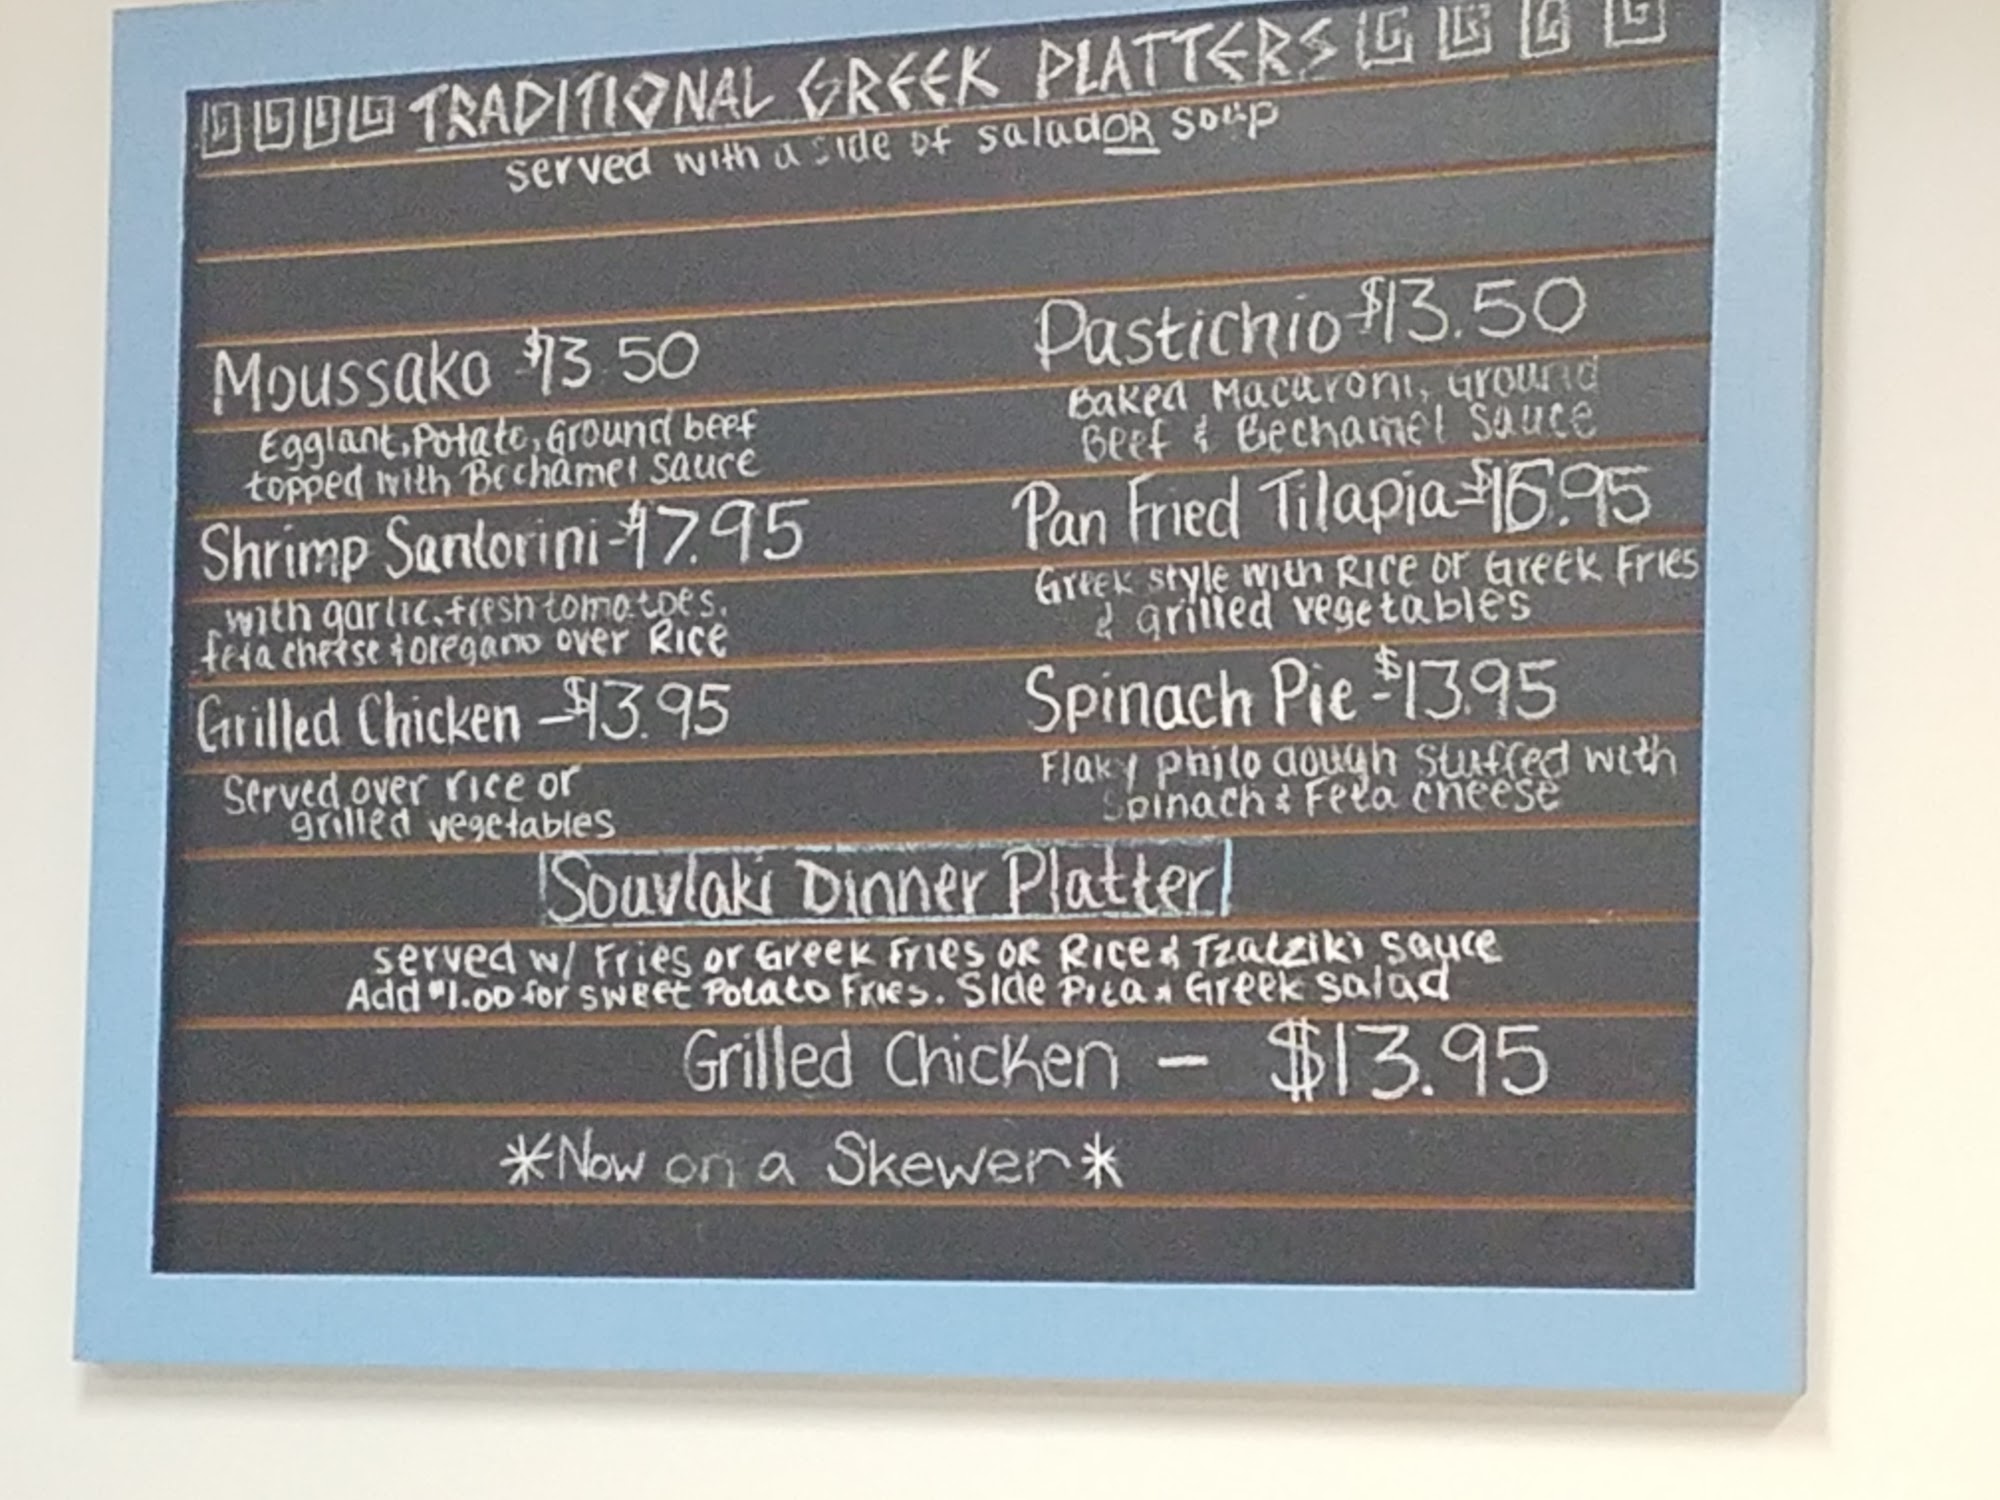 TRADITIONAL GREEK PLATTERS
served with a side of salad OR soup
Moussaka $13.50
Egglant, Potato, Ground beef
topped with Bechamel sauce
Shrimp Santorini - $17.95
with garlic, fresh tomatoes,
feta cheese & oregano over Rice
Grilled Chicken - $13.95
Served over rice or
grilled vegetables
Pastichio $13.50
Baked Macaroni, Ground
Beef & Bechamel Sauce
Pan Fried Tilapia - $16.95
Greek style with Rice or Greek Fries
& grilled vegetables
Spinach Pie - $13.95
Flaky philo dough stuffed with
Spinach & Feta cheese
Souvlaki Dinner Platter
served w/ Fries or Greek Fries or Rice & Tzatziki sauce
Add $1.00 for sweet Potato Fries. Side Pita & Greek salad
Grilled Chicken - $13.95
*Now on a Skewer*